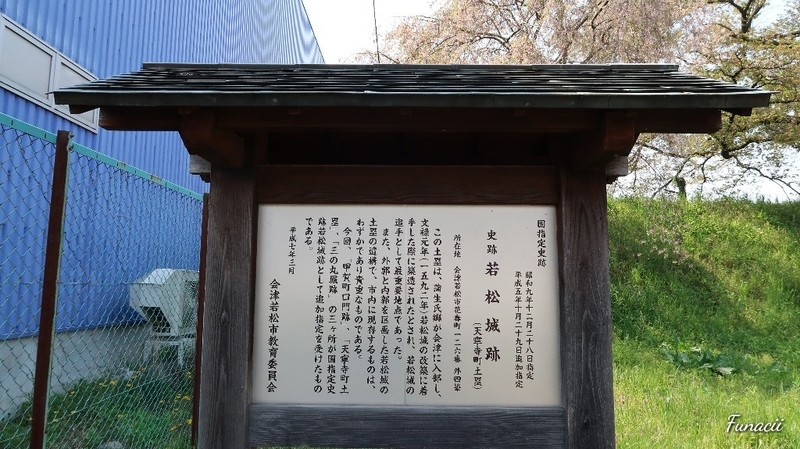 国指定史跡
昭和九年十二月二十八日指定
平成五年十月二十九日追加指定
史跡 若松城跡
(天寧寺町土塁)
所在地 会津若松市花春町一二六番 外四筆
この土塁は、蒲生氏郷が会津に入部し、
文禄元年(一五九二年)若松城の改築に着
手した際に築造されたとされ、若松城の
追手として最重要地点であった。
また、外郭と内郭を区画した若松城の
土塁の遺構で、市内に現存するものは、
わずかであり貴重なものである。
今回、「甲賀町口門跡」、「天寧寺町土
塁」、「三の丸堀跡」の三ヶ所が国指定史
跡若松城跡として追加指定を受けたもの
である。
平成七年三月
会津若松市教育委員会
Funacii